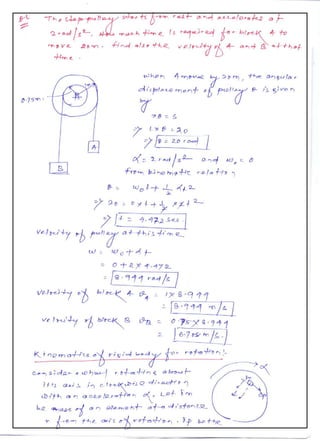 The step pulley starts from rest and accelerates at
2 rad/s². How much time is required for block A to
move 20m. find also the velocity of A and B at that
time.
when A move by 20m, the angular
displacement of pulley θ is given
by
rθ = s
⇒ 1×θ = 20
⇒ θ = 20 rad
α = 2 rad/s² and ω₀ = 0
from kinematic relation
θ = ω₀t + 1/2 αt²
⇒ 20 = 0×t + 1/2 ×2×t²
⇒ t = 4.472 sec
0.75m
A
B
velocity of pulley at this time
ω = ω₀ + αt
= 0 + 2 × 4.472
= 8.944 rad/s
velocity of block A vA = 1 × 8.944
= 8.944 m/s
velocity of block B vB = 0.75 × 8.944
= 6.708 m/s.
Kinematics of rigid body for rotation:
consider a wheel rotating about
its axis in clockwise direction
with an acceleration α. Let δm
be mass of an element at a distance
r from the axis of rotation. δp be the
α